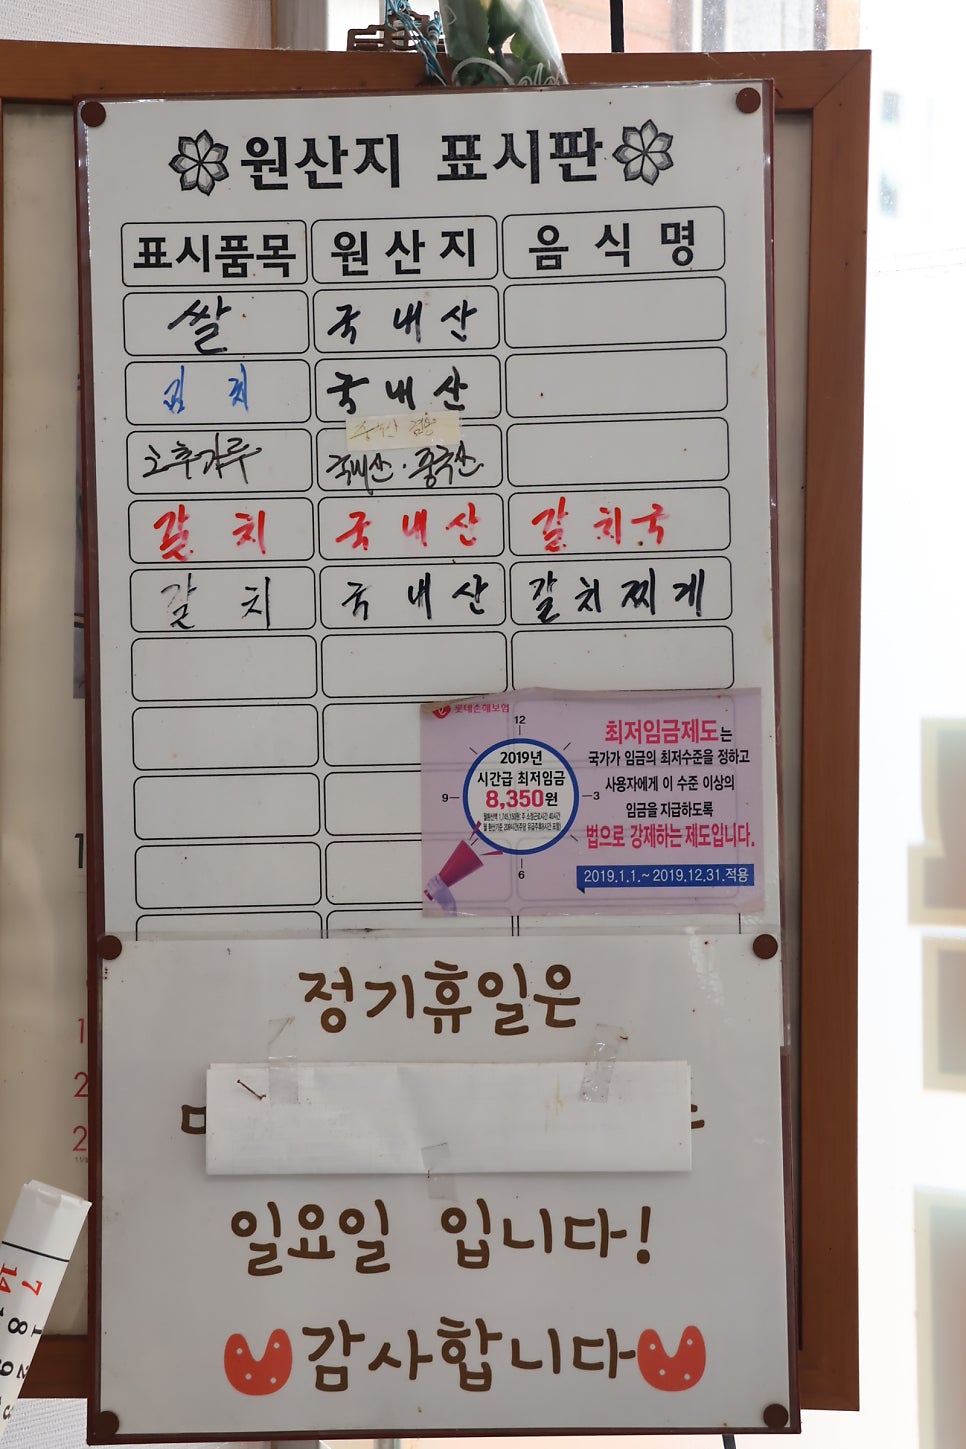 원산지 표시판
표시품목 원산지 음식명
쌀 국내산
김치 국내산
중국산 겸용
고추가루 국내산·중국산
갈치 국내산 갈치국
갈치 국내산 갈치찌게
롯데손해보험
12
3
6
9
2019년
시간급 최저임금
8,350원
최저임금제도는
국가가 임금의 최저수준을 정하고
사용자에게 이 수준 이상의
임금을 지급하도록
법으로 강제하는 제도입니다.
2019.1.1.~2019.12.31.적용
정기휴일은
일요일 입니다!
감사합니다
1
2
2
7
14
8